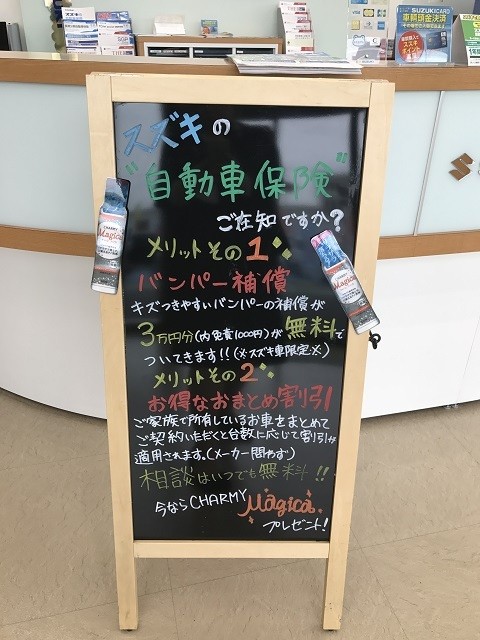 スズキの
"自動車保険"
ご在知ですか?
メリットその1
バンパー補償
キズつきやすいバンパーの補償が
3万円分(内免責1000円)が無料で
ついてきます!!(※スズキ車限定※)
メリットその2
お得なおまとめ割引
ご家族で所有しているお車をまとめて
ご契約いただくと台数に応じて割引が
適用されます。(メーカー問わず)
相談はいつでも無料!!
今ならCHARMY Magica
プレゼント!
CHARMY
Magica
Magica
SUZUKI CARD
車輌頭金決済